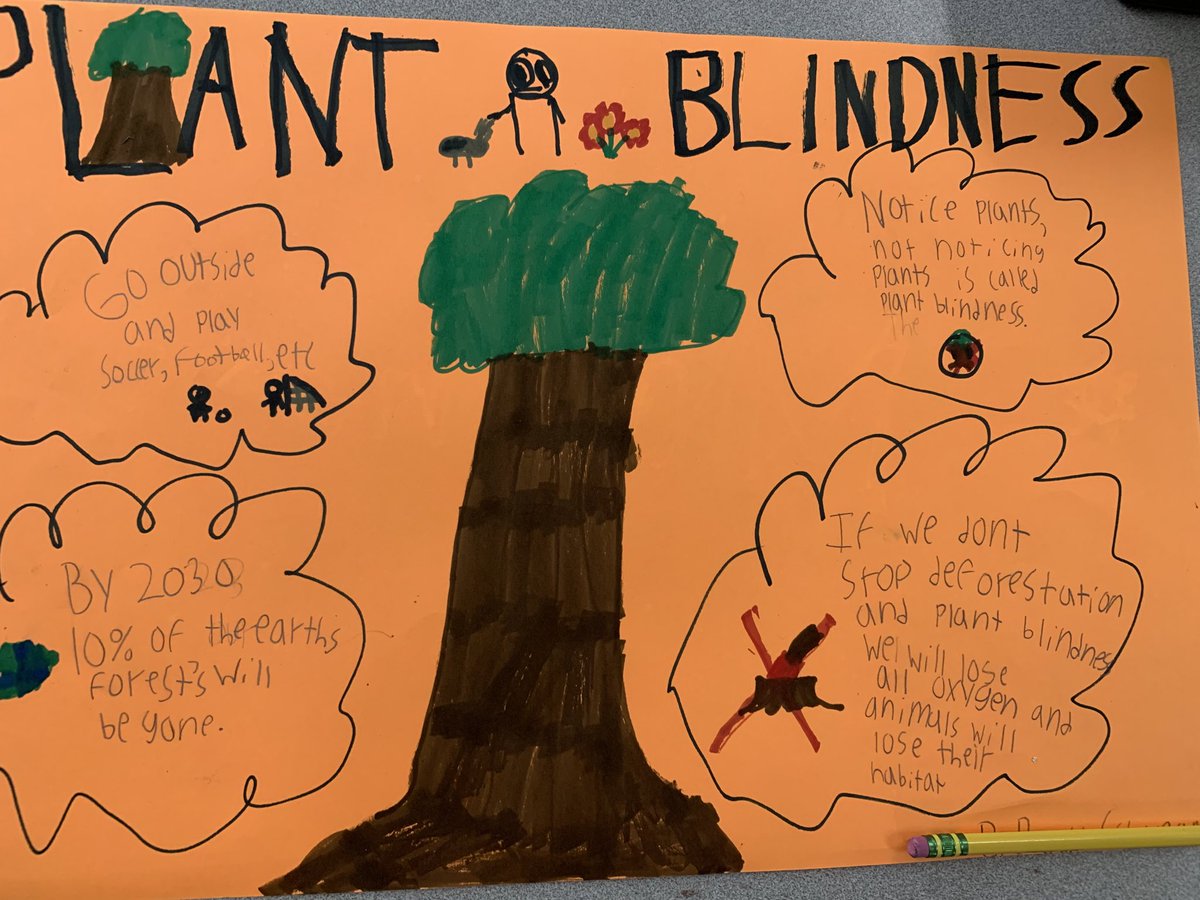 PLANT BLINDNESS
Go outside
and play
soccer, football, etc
Notice plants,
not noticing
plants is called
plant blindness.
The
By 2030
10% of the earths
forest's will
be gone.
If we dont
stop deforestation
and plant blindness
we will lose
all oxygen and
animals will
lose their
habitat